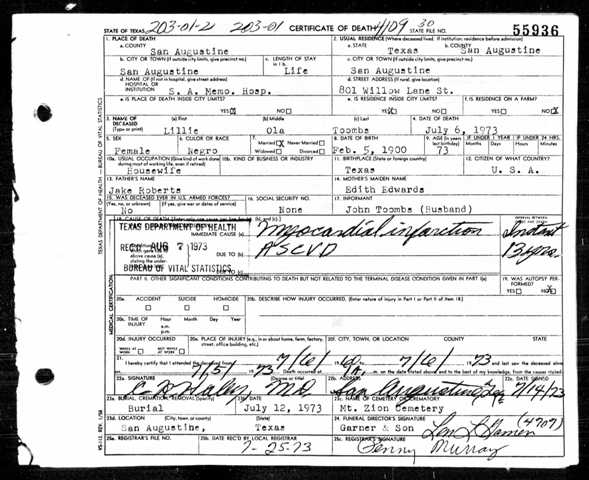 STATE OF TEXAS 203-01-2 203-01 CERTIFICATE OF DEATH 4109 30 STATE FILE NO. 55936
1. PLACE OF DEATH 2. USUAL RESIDENCE (Where deceased lived. If institution, residence before admission)
a. COUNTY a. STATE b. COUNTY
San Augustine Texas San Augustine
b. CITY OR TOWN (If outside city limits, give precinct no.) c. LENGTH OF STAY in 1 b. c. CITY OR TOWN (If outside city limits, give precinct no.)
San Augustine Life San Augustine
d. NAME OF (If not in hospital, give street address) HOSPITAL OR INSTITUTION d. STREET ADDRESS (If rural, give location)
S. A. Memo. Hosp. 801 Willow Lane St.
e. IS PLACE OF DEATH INSIDE CITY LIMITS? e. IS RESIDENCE INSIDE CITY LIMITS? f. IS RESIDENCE ON A FARM?
YES X NO YES X NO YES NO X
3. NAME OF DECEASED (Type or print) (a) First (b) Middle (c) Last 4. DATE OF DEATH
Lillie Ola Toombs July 6, 1973
5. SEX 6. COLOR OR RACE 7. Married X Never Married Widowed Divorced 8. DATE OF BIRTH 9. AGE (In years last birthday) IF UNDER 1 YEAR IF UNDER 24 HRS.
Months Days Hours Minutes
Female Negro Feb. 5, 1900 73
10a. USUAL OCCUPATION (Give kind of work done during most of working life, even if retired) 10b. KIND OF BUSINESS OR INDUSTRY 11. BIRTHPLACE (State or foreign country) 12. CITIZEN OF WHAT COUNTRY?
Housewife Texas U. S. A.
13. FATHER'S NAME 14. MOTHER'S MAIDEN NAME
Jake Roberts Edith Edwards
15. WAS DECEASED EVER IN U.S. ARMED FORCES? 16. SOCIAL SECURITY NO. 17. INFORMANT
(Yes, no, or unknown) (If yes, give war or dates of service)
No None John Toombs (Husband)
18. CAUSE OF DEATH
TEXAS DEPARTMENT OF HEALTH IMMEDIATE CAUSE (a) Myocardial infarction Instant
REC'D AUG 7 1973 DUE TO (b) ASCVD 13 yrs.
above cause (a), stating the under-
BUREAU OF VITAL STATISTICS DUE TO (c)
PART II. OTHER SIGNIFICANT CONDITIONS CONTRIBUTING TO DEATH BUT NOT RELATED TO THE TERMINAL DISEASE CONDITION GIVEN IN PART I(a) 19. WAS AUTOPSY PERFORMED?
YES NO X
20a. ACCIDENT SUICIDE HOMICIDE 20b. DESCRIBE HOW INJURY OCCURRED. (Enter nature of injury in Part I or Part II of item 18.)
20c. TIME OF INJURY Hour Month Day Year
a.m.
p.m.
20d. INJURY OCCURRED 20e. PLACE OF INJURY (e.g., in or about home, farm, factory, street, office building, etc.) 20f. CITY, TOWN, OR LOCATION COUNTY STATE
WHILE AT WORK NOT WHILE AT WORK
21. I hereby certify that I attended the deceased from 7/6/ 60 7/6/ 1973 and last saw the deceased alive
7/5/ 1973 Death occurred at on the date stated above, and to the best of my knowledge, from the causes stated.
22a. SIGNATURE (Degree or title) 22b. ADDRESS 22c. DATE SIGNED
M.D. San Augustine, Tex 7/14/73
23a. BURIAL, CREMATION, REMOVAL (Specify) 23b. DATE 23c. NAME OF CEMETERY OR CREMATORY
Burial July 12, 1973 Mt. Zion Cemetery
23d. LOCATION (City, town, or county) (State) 24. FUNERAL DIRECTOR'S SIGNATURE (4707)
San Augustine, Texas Garner & Son
25a. REGISTRAR'S FILE NO. 25b. DATE REC'D BY LOCAL REGISTRAR 25c. REGISTRAR'S SIGNATURE
7-25-73 Penny Murray
TEXAS DEPARTMENT OF HEALTH — BUREAU OF VITAL STATISTICS
MEDICAL CERTIFICATION